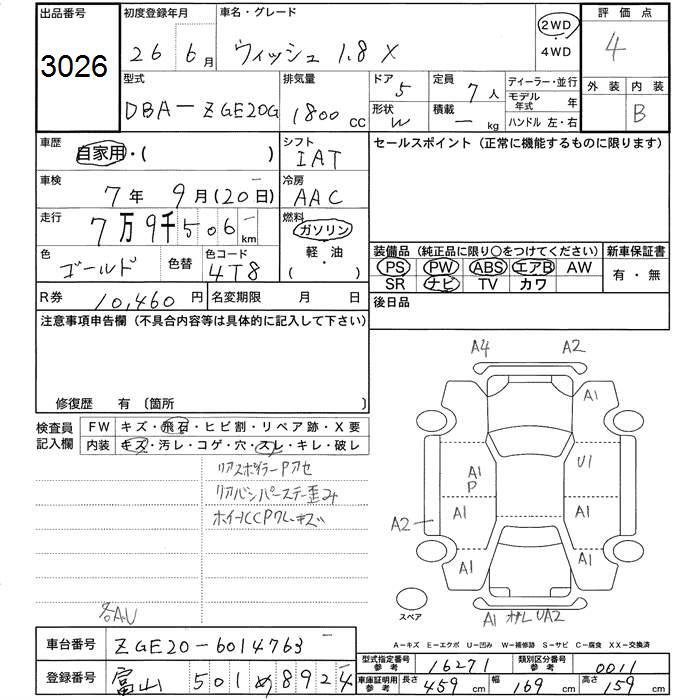 出品番号
3026
初度登録年月
26 6月
車名・グレード
ウィッシュ 1.8 X
2WD
4WD
評価点
4
外装 内装
B
型式
DBA-ZGE20G
排気量
1800 CC
ドア 5
形状 W
定員 7人
積載 - kg
ディーラー・並行
モデル年式 年
ハンドル 左・右
車歴
自家用・( )
シフト
IAT
車検
7年 9月(20日)
冷房
AAC
走行
7万9千506km
燃料
ガソリン
軽・油
( )
色
ゴールド
色替
色コード
4T8
R券 10,460円
名変期限 月 日
セールスポイント (正常に機能するものに限ります)
装備品 (純正品に限り○をつけてください)
PS PW ABS エアB AW
SR ナビ TV カワ
新車保証書
有・無
後日品
注意事項申告欄 (不具合内容等は具体的に記入して下さい)
修復歴 有 〔箇所 〕
検査員記入欄
FW キズ・飛石・ヒビ割・リペア跡・X要
内装 キズ・汚レ・コゲ・穴・スレ・キレ・破レ
リアスポイラーPアセ
リアバンパーステー歪み
各AU
A4 A2
A1
A1
P
U1
A1
A1
A2
A1
A1
スペア
A1
UA2
A-キズ E-エクボ U-凹み W-補修跡 S-サビ C-腐食 XX-交換済
車台番号 ZGE20-6014763
登録番号 富山 501 め 8924
型式指定番号 参考 16271
類別区分番号 参考 0011
車庫証明用 参考 長さ 459cm 幅 169cm 高さ 159cm